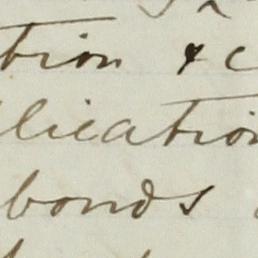 tion &c
lication
bonds